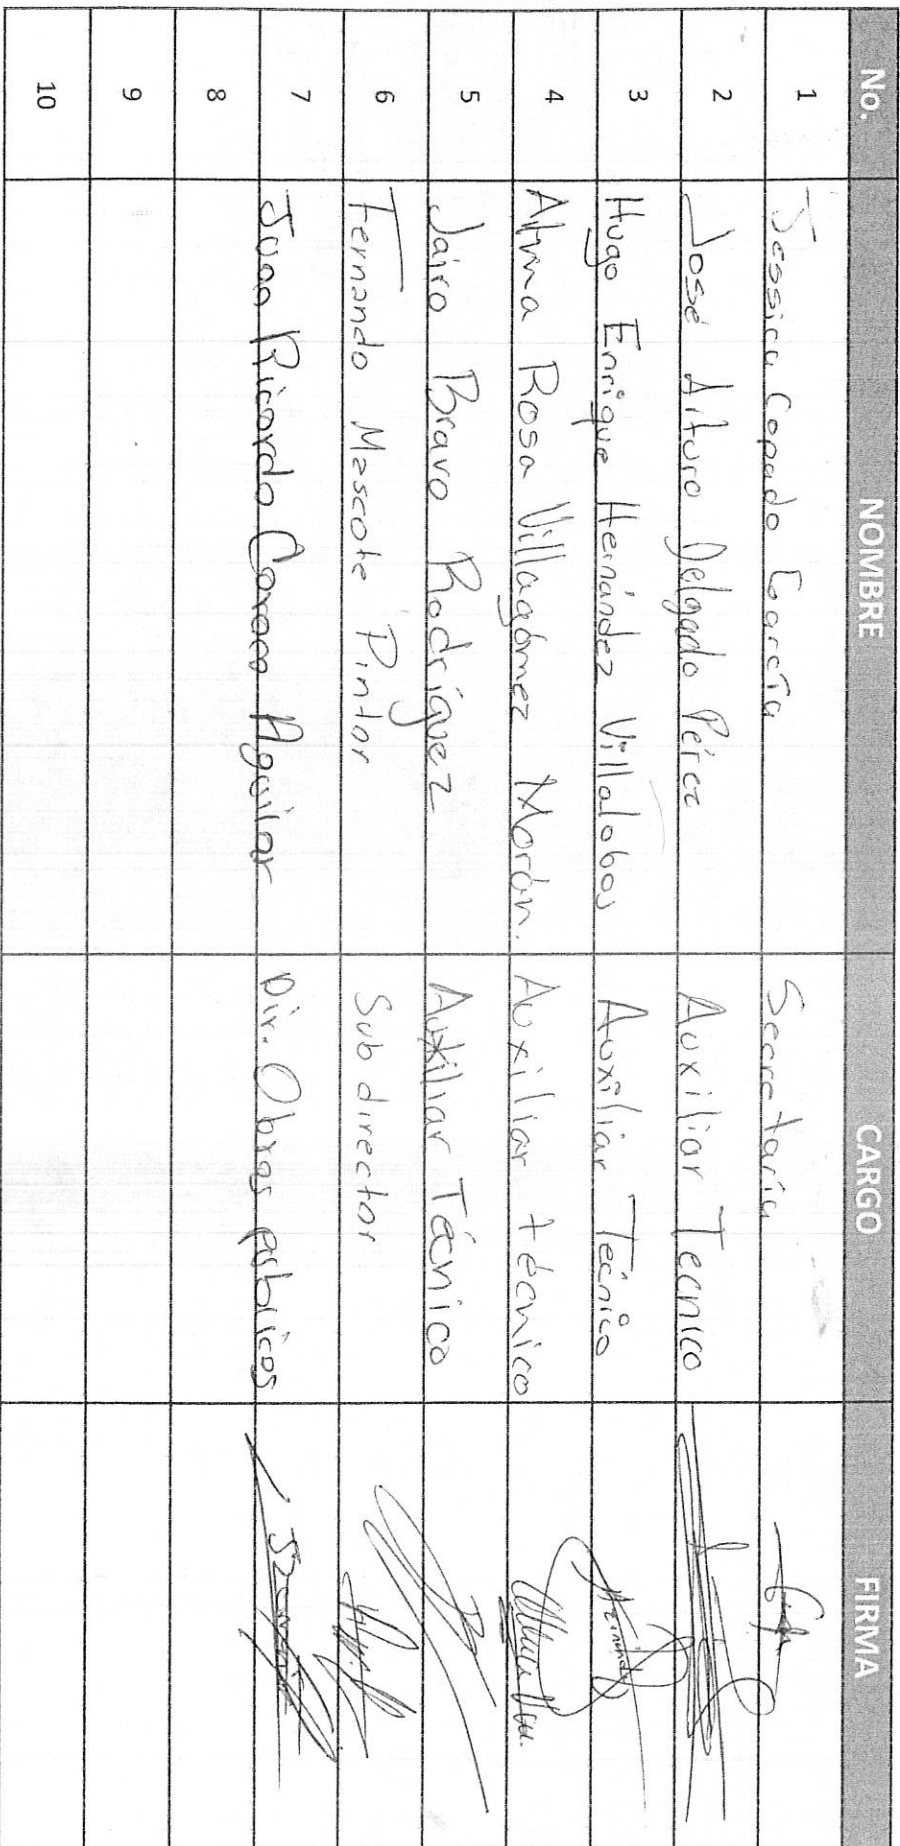 No. NOMBRE CARGO FIRMA
1 Jessica Copado García Secretaria
2 José Arturo Delgado Pérez Auxiliar Tecnico
3 Hugo Enrique Hernández Villalobos Auxiliar Tecnico
4 Alma Rosa Villagómez Morán. Auxiliar técnico
5 Jairo Bravo Rodríguez Auxiliar Técnico
6 Fernando Mascote Pintor Sub director
7 Juan Ricardo Aguilar Dir. Obras publicas
8
9
10